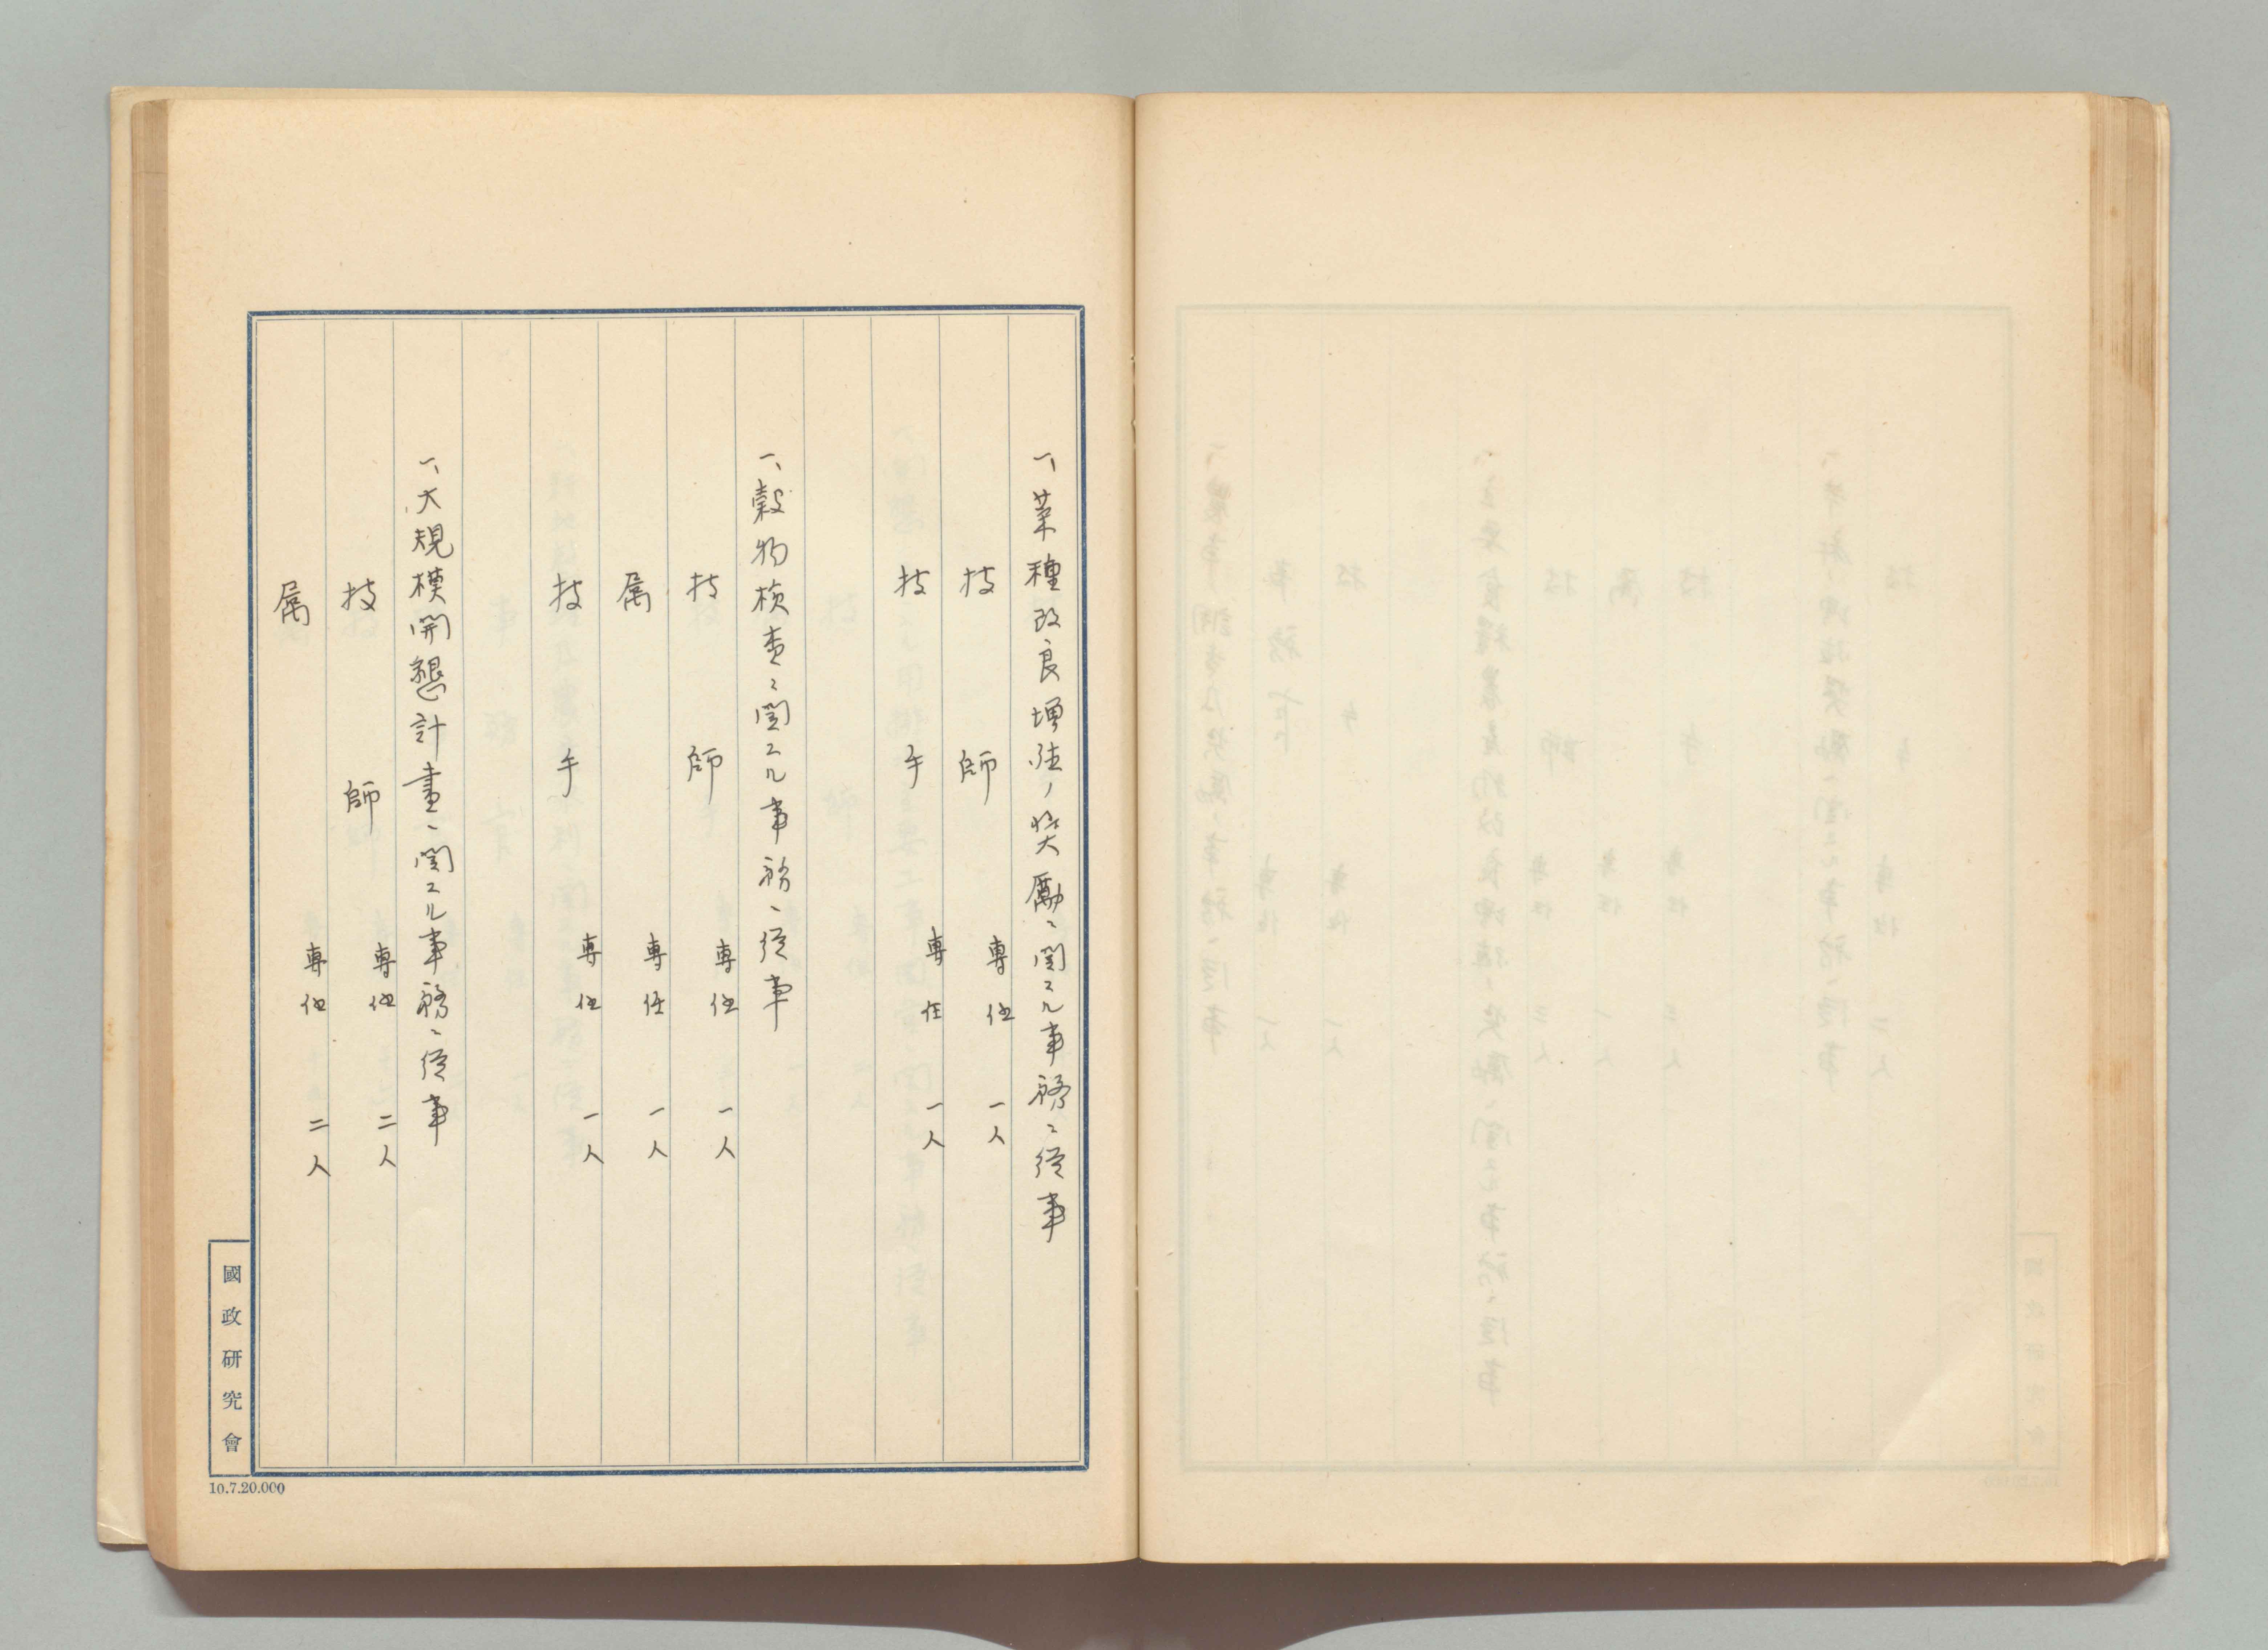 一、菜種改良増殖ノ奨勵ニ関スル事務ニ従事
技師 専任 一人
技手 専任 一人
一、穀物検査ニ関スル事務ニ従事
技師 専任 一人
属 専任 一人
技手 専任 一人
一、大規模開墾計畫ニ関スル事務ニ従事
技師 専任 二人
属 専任 二人
國政研究會
10.7.20.000